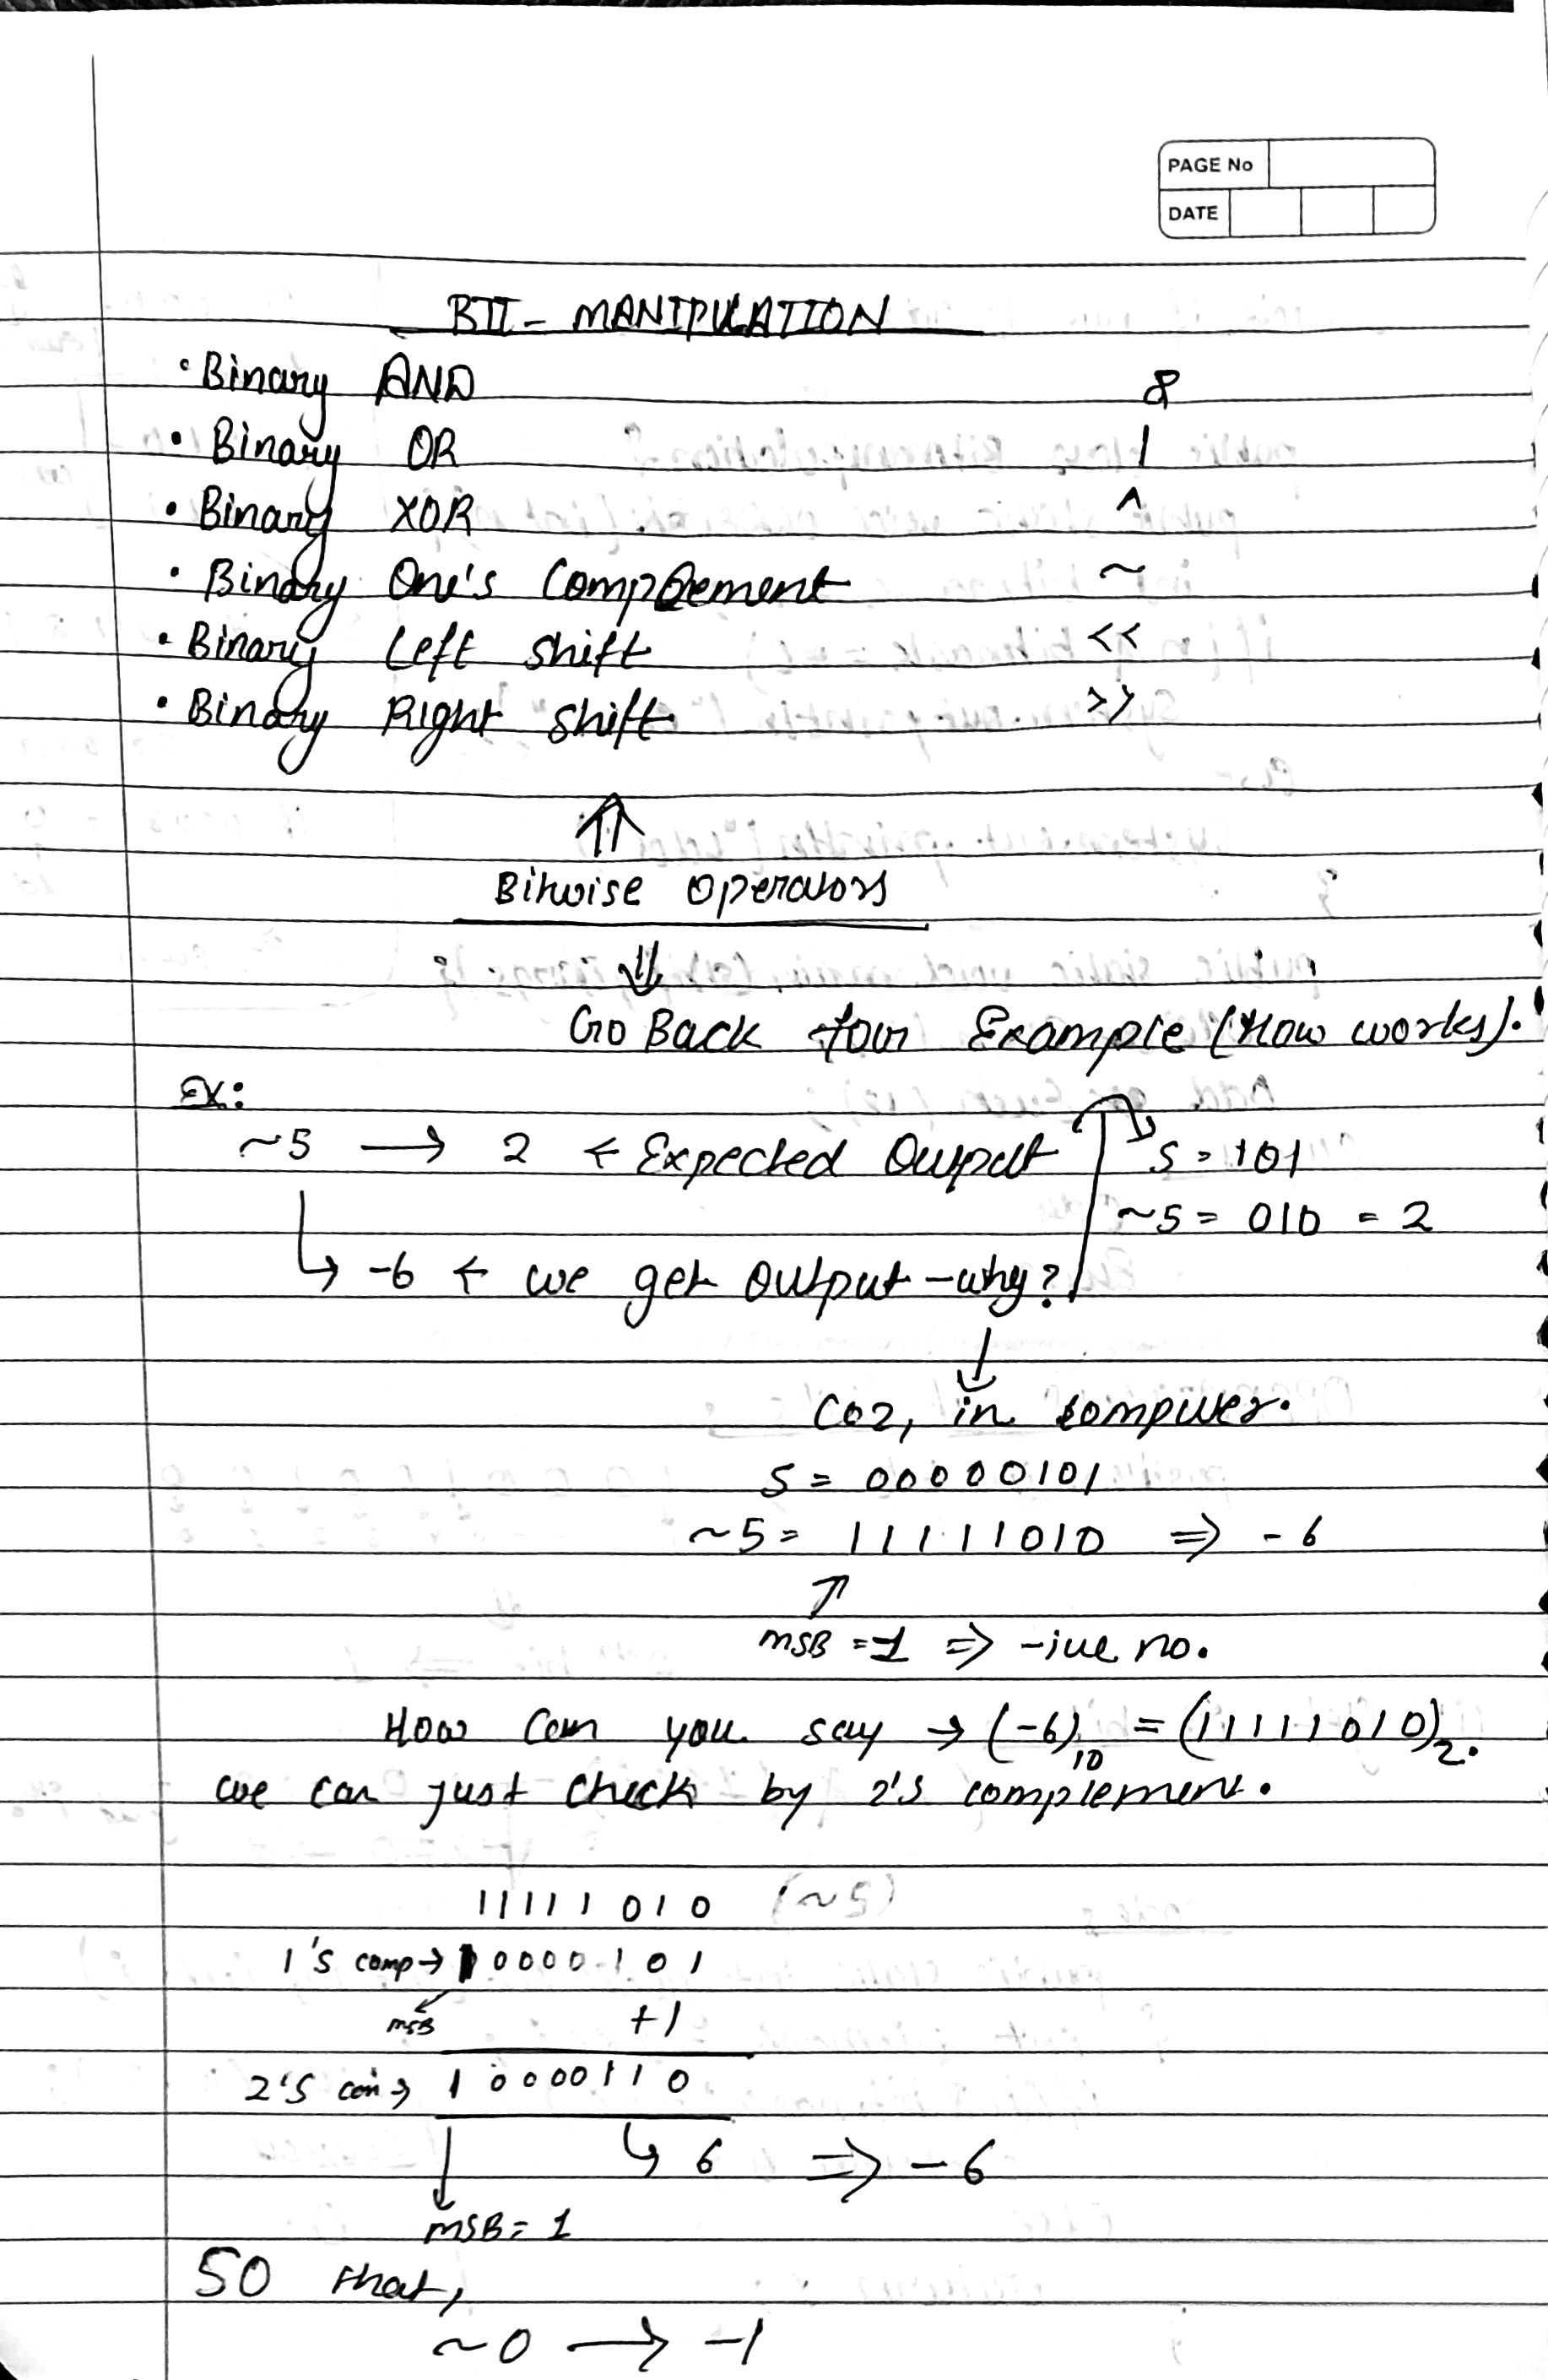 PAGE No
DATE
BIT - MANIPULATION
• Binary AND &
• Binary OR |
• Binary XOR ^
• Binary One's Complement ~
• Binary Left shift <<
• Binary Right shift >>
⇑
Bitwise operators
⇓
Go Back four Example (How works).
Ex:
~5 → 2 ← Expected Output 5 = 101
~5 = 010 = 2
↳ -6 ← we get output - why?
↓
coz, in computer.
5 = 00000101
~5 = 11111010 ⇒ -6
↑
MSB = 1 ⇒ -ive no.
How can you say → (-6)₁₀ = (11111010)₂.
we can just check by 2's complement.
11111010 (~5)
1's comp → 10000101
MSB +1
2's com → 10000110
↳ 6 ⇒ -6
MSB = 1
SO that,
~0 → -1